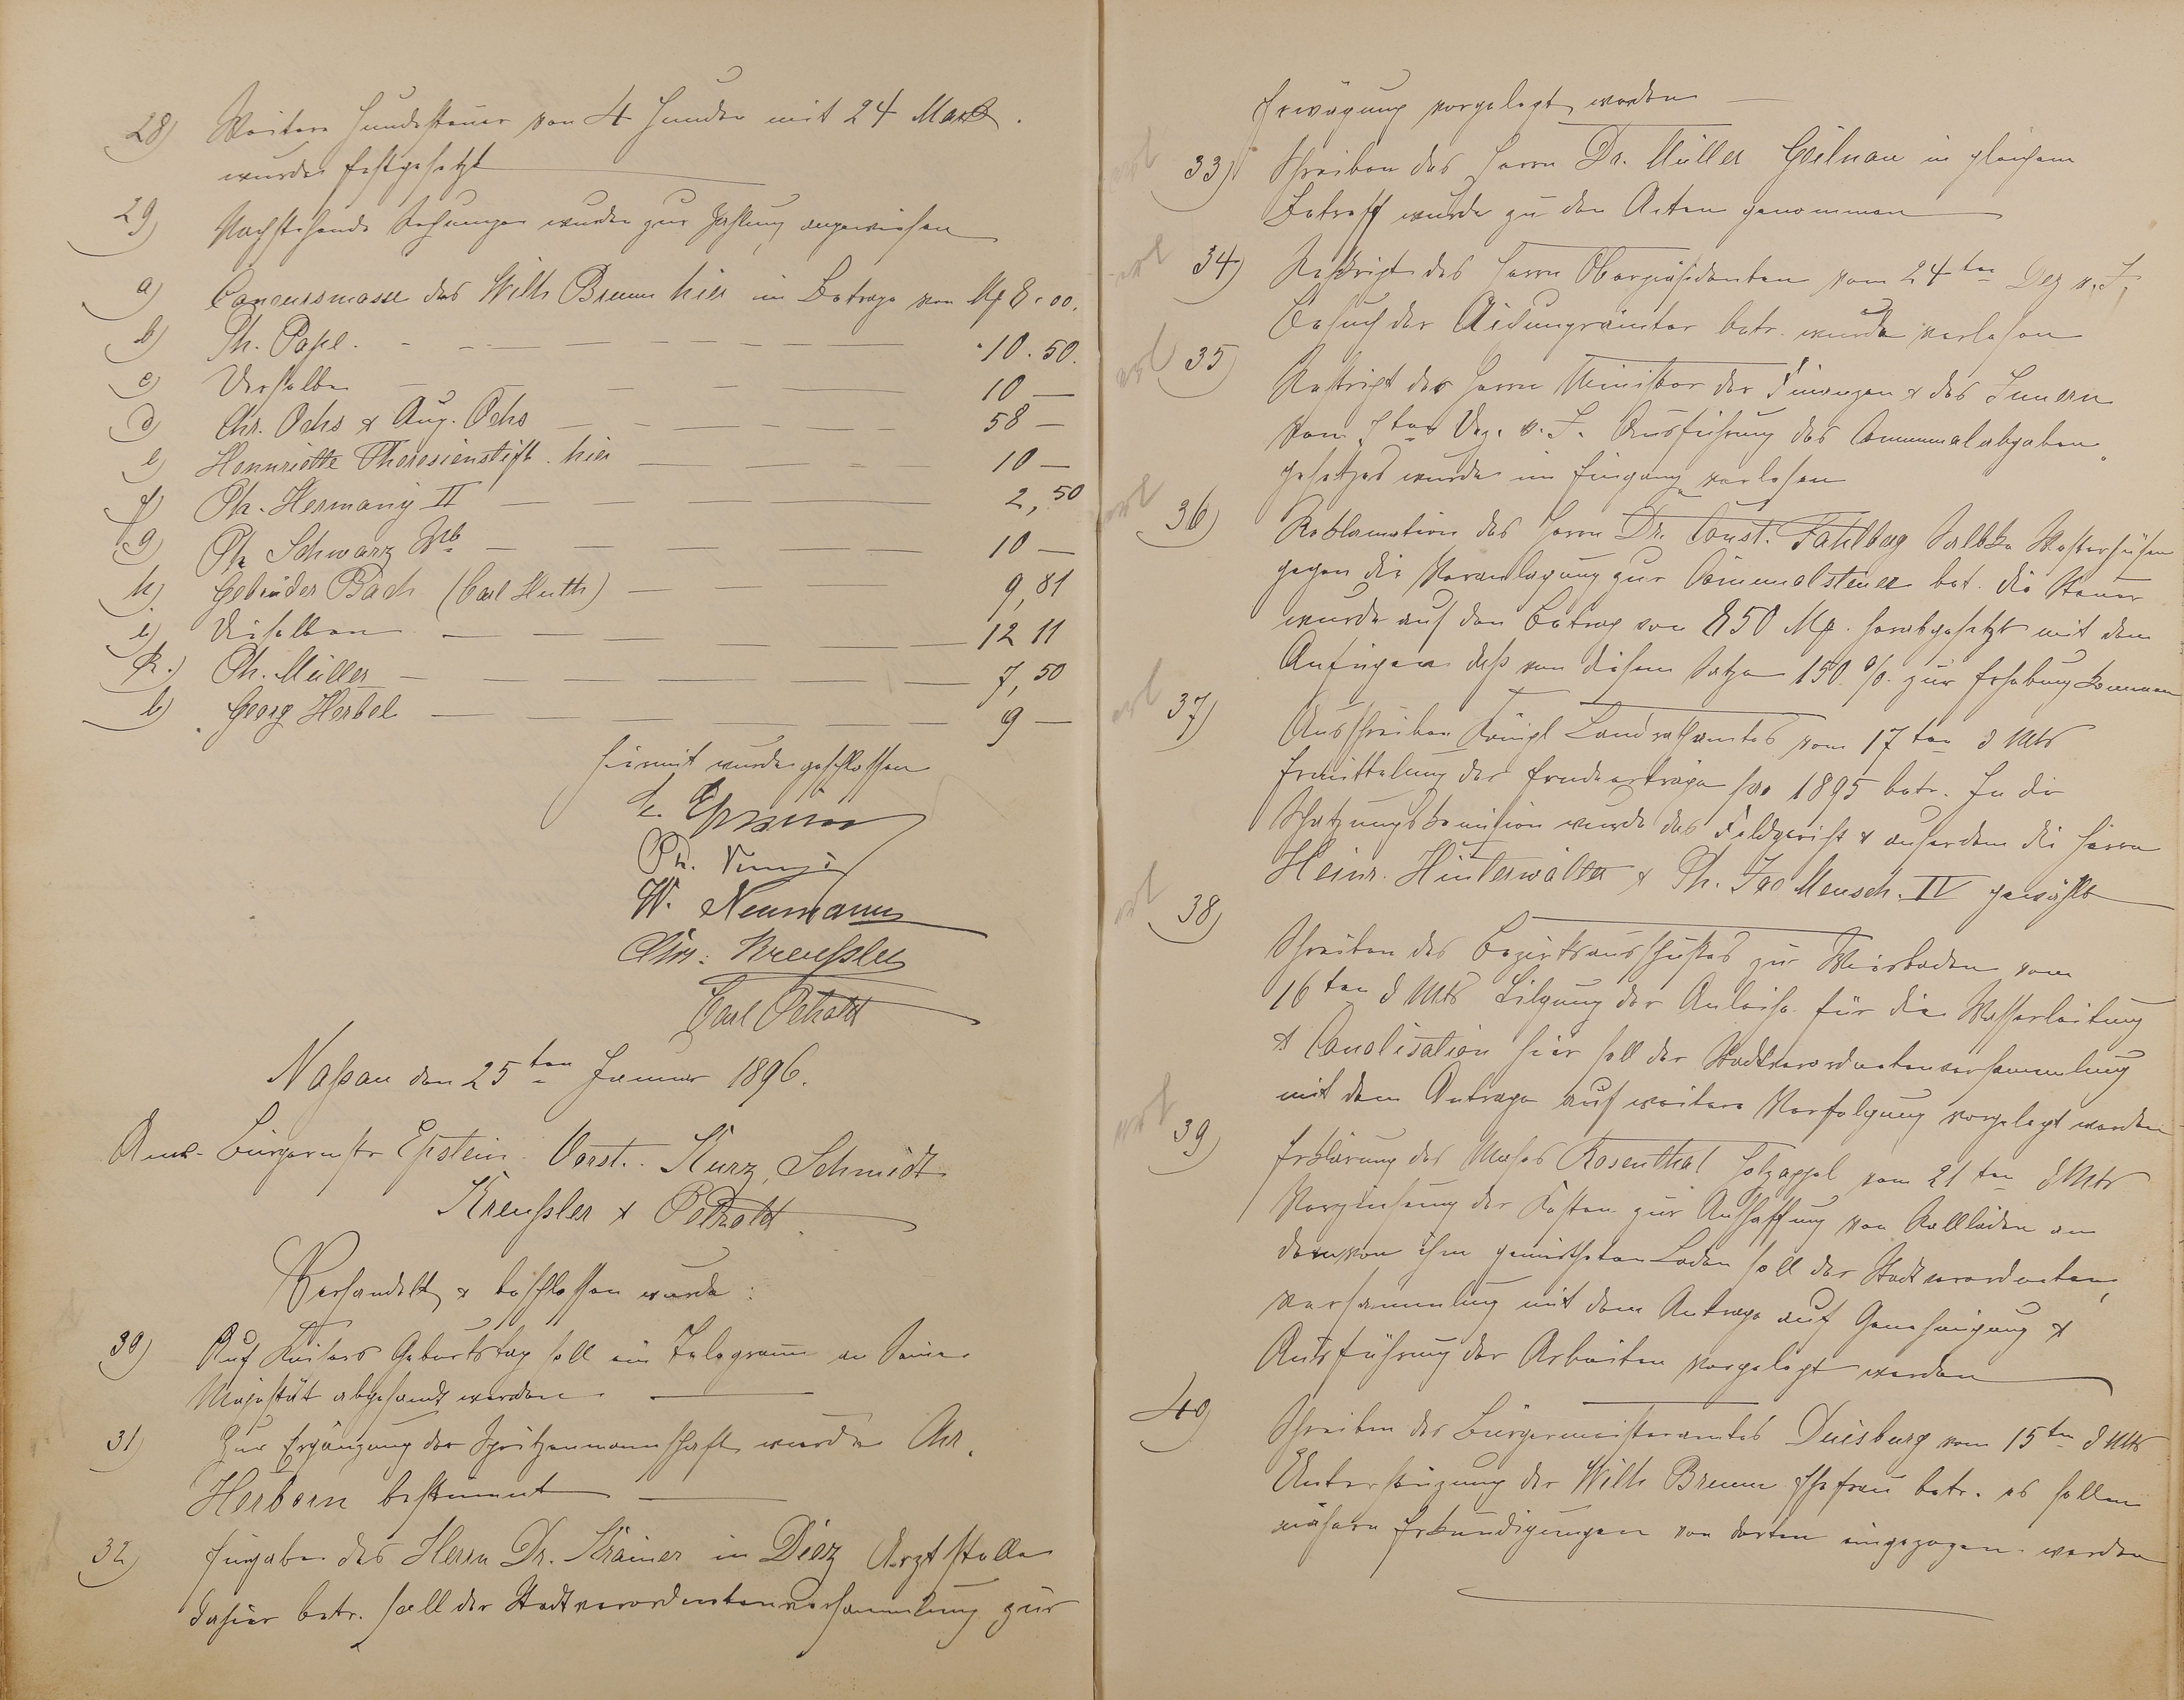 28) Weitere Hundesteuer von 4 Hunden mit 24 Mark.
wurde festgesetzt
29) Nachstehende Rechnungen wurden zur Zahlung angewiesen
a) Concursmasse des Wilh Bruun hier im Betrage von Mk 8.00.
b) Ph. Pape. 10.50.
c) Derselbe 10 —
d) Chr. Ochs & Aug. Ochs 58 —
e) Hennriette Theresienstift hier 10 —
f) Ph. Hermany II 2,50
g) Ph Schwarz Wb 10 —
h) Gebrüder Bach (Carl Huth) 9,81
i) Dieselben 12 11
k.) Ph. Müller 7,50
l) Georg Herbel 9 —
Hiermit wurde geschlossen
Epstein
Ph.
W. Neumann
Chr: Kreußler
Carl Petzold
Naßau den 25ten Januar 1896.
Anw. Bürgermstr Epstein Vorst. Kurz, Schmidt
Kreußler & Petzold.
Verhandelt & beschlossen wurde:
30) Auf Kaisers Geburtstag soll ein Telegramm an Seine
Majestät abgesandt werden
31) Zur Ergänzung der Spritzenmannschaft wurde Chr.
Herborn bestimmt
32) Eingabe des Herrn Dr. Krämer in Diez Arztstelle
dahier betr. soll der Stadtverordnetenversammlung zur
Erwägung vorgelegt werden
33) Schreiben des Herrn Dr. Müller Geilnau in gleichem
Betreff wurde zu den Acten genommen
34) Reskript des Herrn Oberpräsidenten vom 24ten Dez v. J.
Besuch der Aichungsämter betr. wurde verlesen
35) Reskript der Herrn Minister der Finanzen & des Innern
vom ten Dez. v. J. Ausführung des Communalabgaben
gesetzes wurde im Eingang verlesen
36) Reklamation des Herrn Dr. Const. Fahlberg Salbke Westerhüsen
gegen die Veranlagung zur Communalsteuer bet. die Steuer
wurde auf den Betrag von 850 Mk. herabgesetzt mit dem
Anfügen daß von diesem Satze 150 % zur Erhebung kommen
37) Ausschreiben Königl Landrathsamtes vom 17ten d Mts
Ermittelung der Ernteerträge pro 1895 betr. In die
Schatzungskomission wurde das Feldgericht & außerdem die Herrn
Heinr. Hinterwälter & Ph. Jac Mensch. IV gewählt
38) Schreiben des Bezirksausschußes zu Wiesbaden vom
16ten d Mts Tilgung der Anleihe für die Wasserleitung
& Canalisation hier soll der Stadtverordnetenversammlung
mit dem Antrage auf weitere Verfolgung vorgelegt werden
39) Erklärung des Moses Rosenthal Holzappel vom 21ten d Mts
Verzinsung der Kosten zur Anschaffung von Rolläden an
dem von ihm gemietheten Laden soll der Stadtverordneten
versammlung mit dem Antrage auf Genehmigung &
Ausführung der Arbeiten vorgelegt werden
40) Schreiben des Bürgermeisteramtes Duisburg vom 15ten d Mts
Unterstützung der Wilh Bruun Ehefrau betr. es sollen
nähere Erkundigungen von dorten eingezogen werden